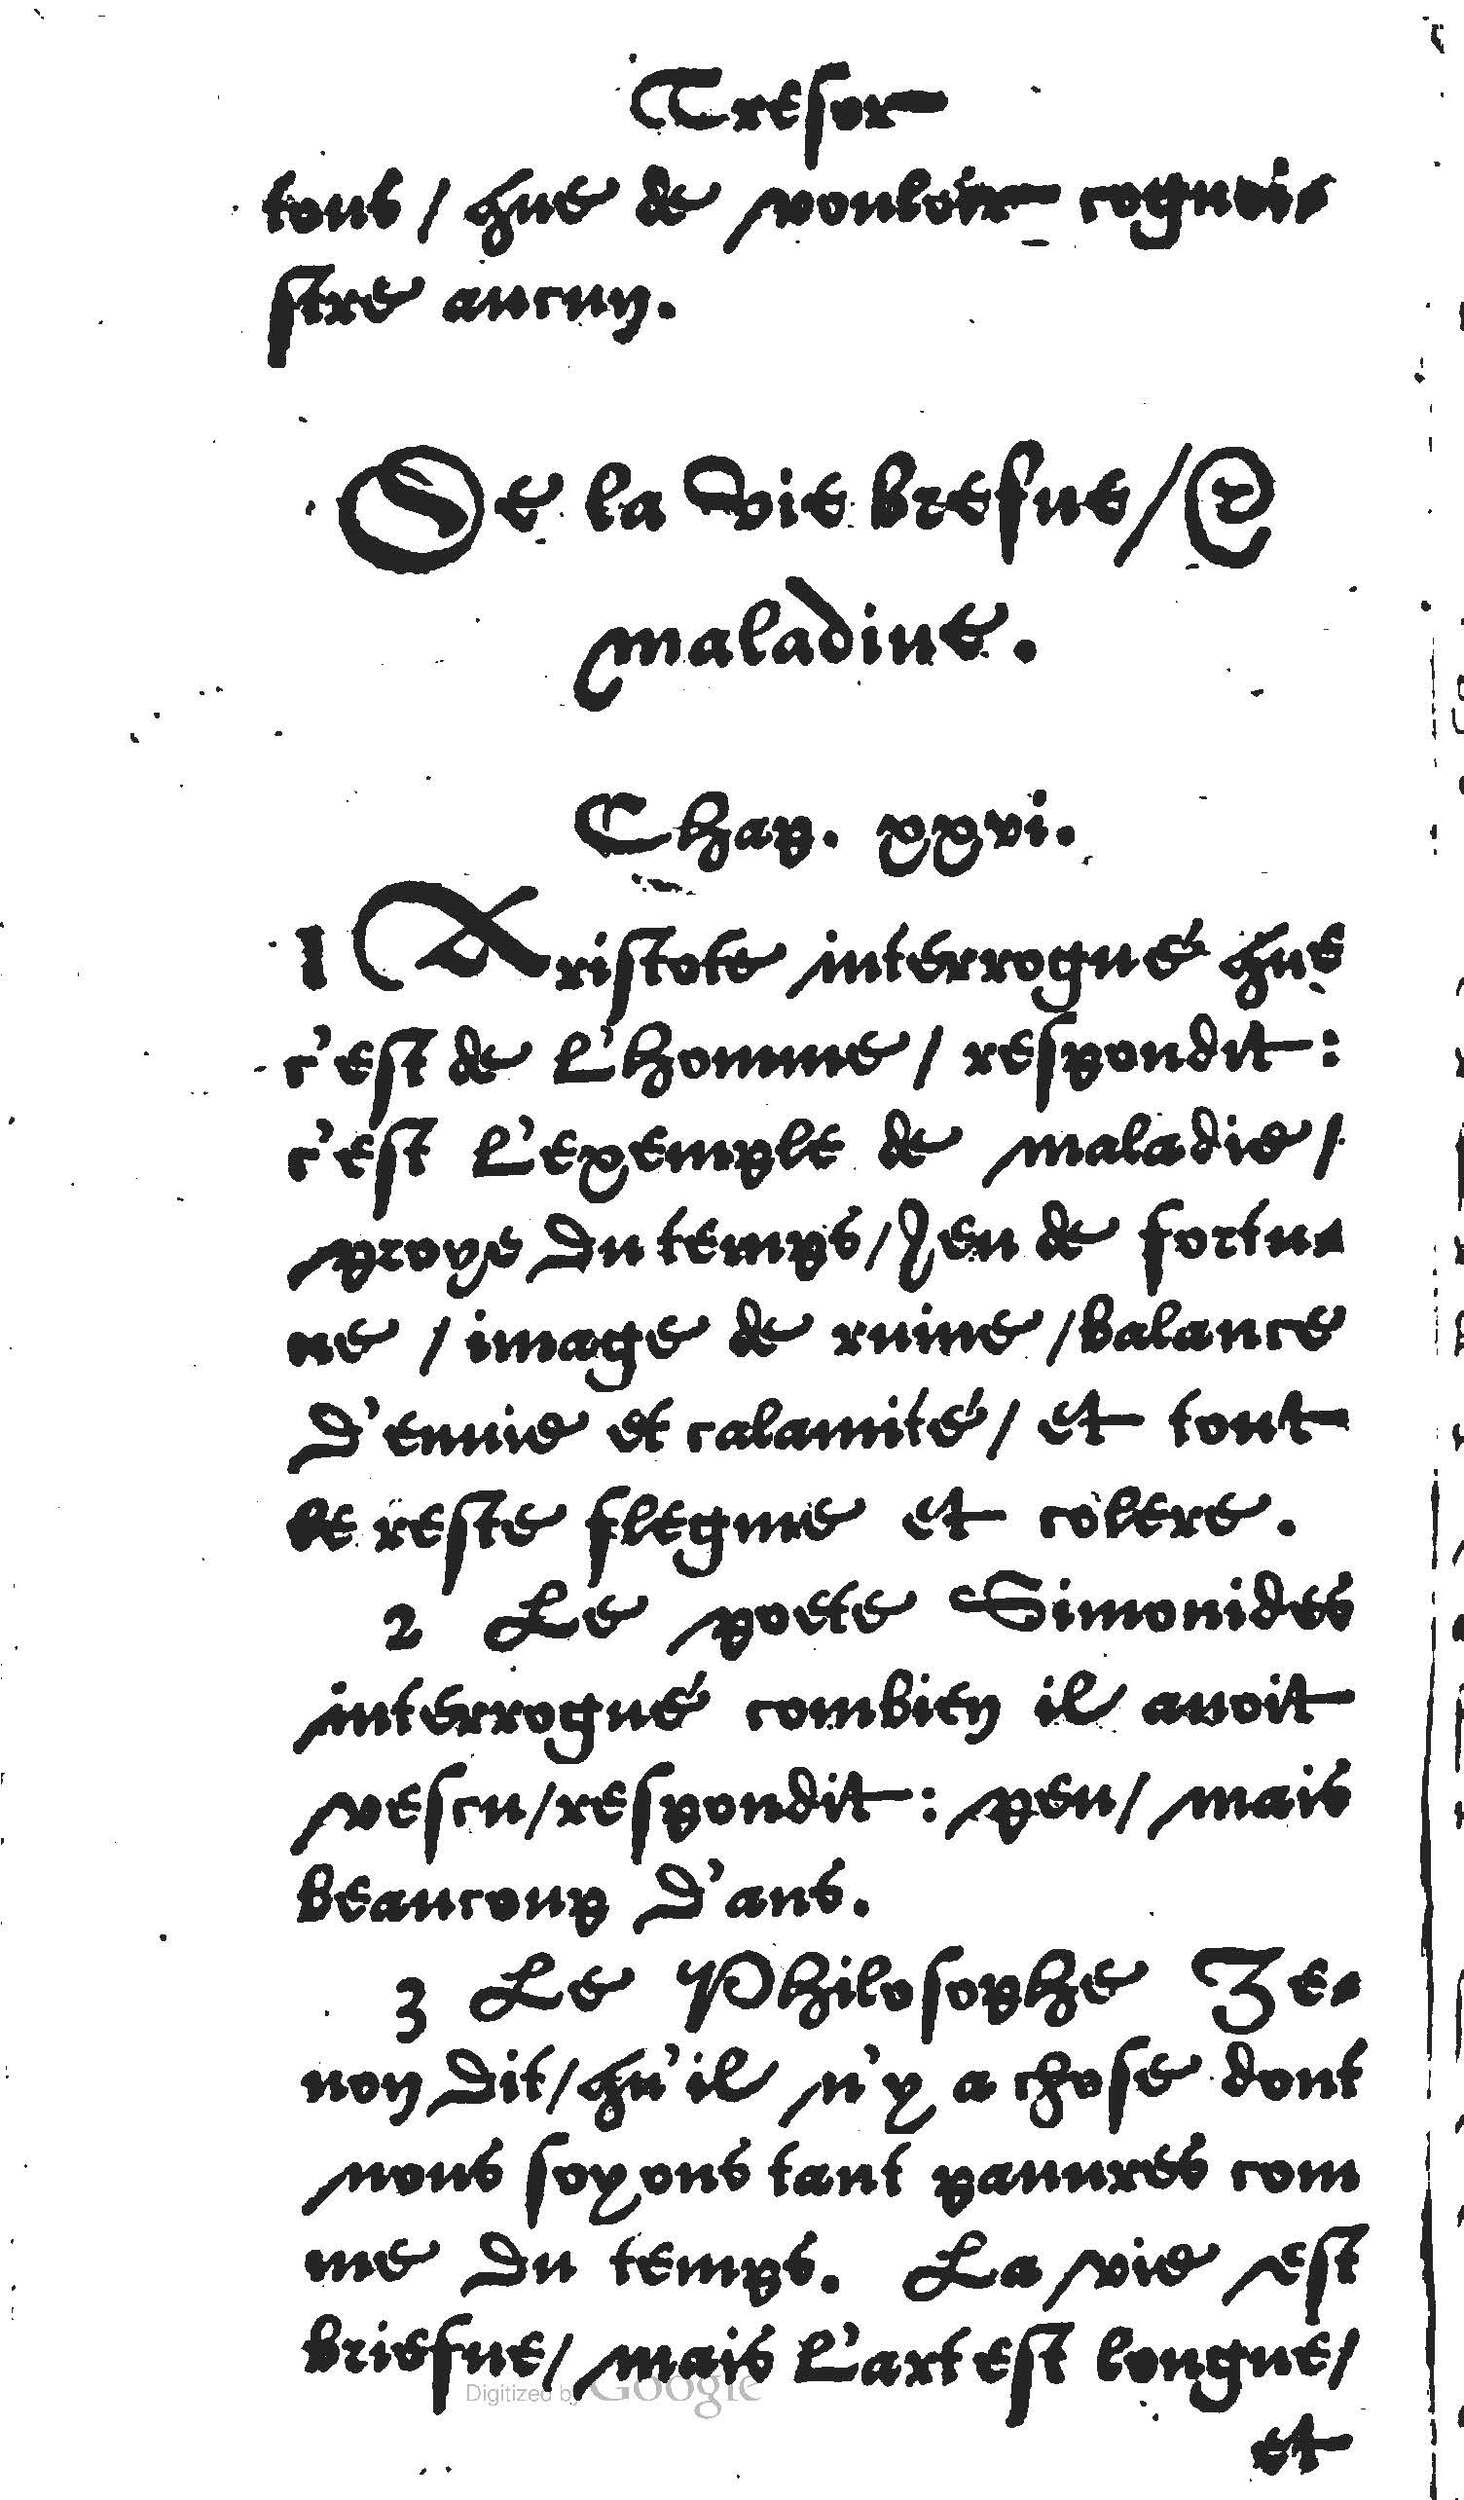 Tresor
tous / que de vouloir cognoi-
stre aucun.
De la vie brefue / &
maladiue.
Chap. xxvi.
1 Aristote interrogué que
c'est de l'homme / respondit :
c'est l'exemple de maladie /
proye du temps / Jeu de fortu-
ne / image de ruine / balance
d'enuie et calamité / et tout
le reste flegme et colere.
2 Le poete Simonides
interrogué combien il auoit
vescu / respondit : peu / mais
beaucoup d'ans.
3 Le Philosophe Ze-
non dit / qu'il n'y a chose dont
nous soyons tant pauures com
me du temps. La vie est
briefue / mais l'art est longue /
Digitized by Google
et